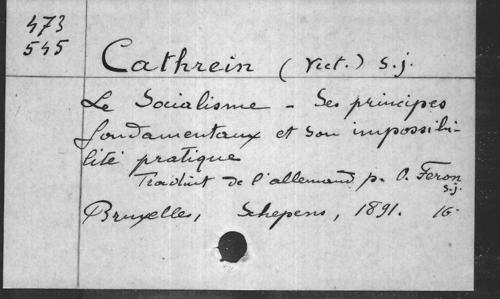 473
545
Cathrein (Vict.) S.j.
Le Socialisme - Ses principes
fondamentaux et son impossibi-
lité pratique
Traduit de l'allemand p. O. Feron
s.j.
Bruxelles, Schepens, 1891. 16-